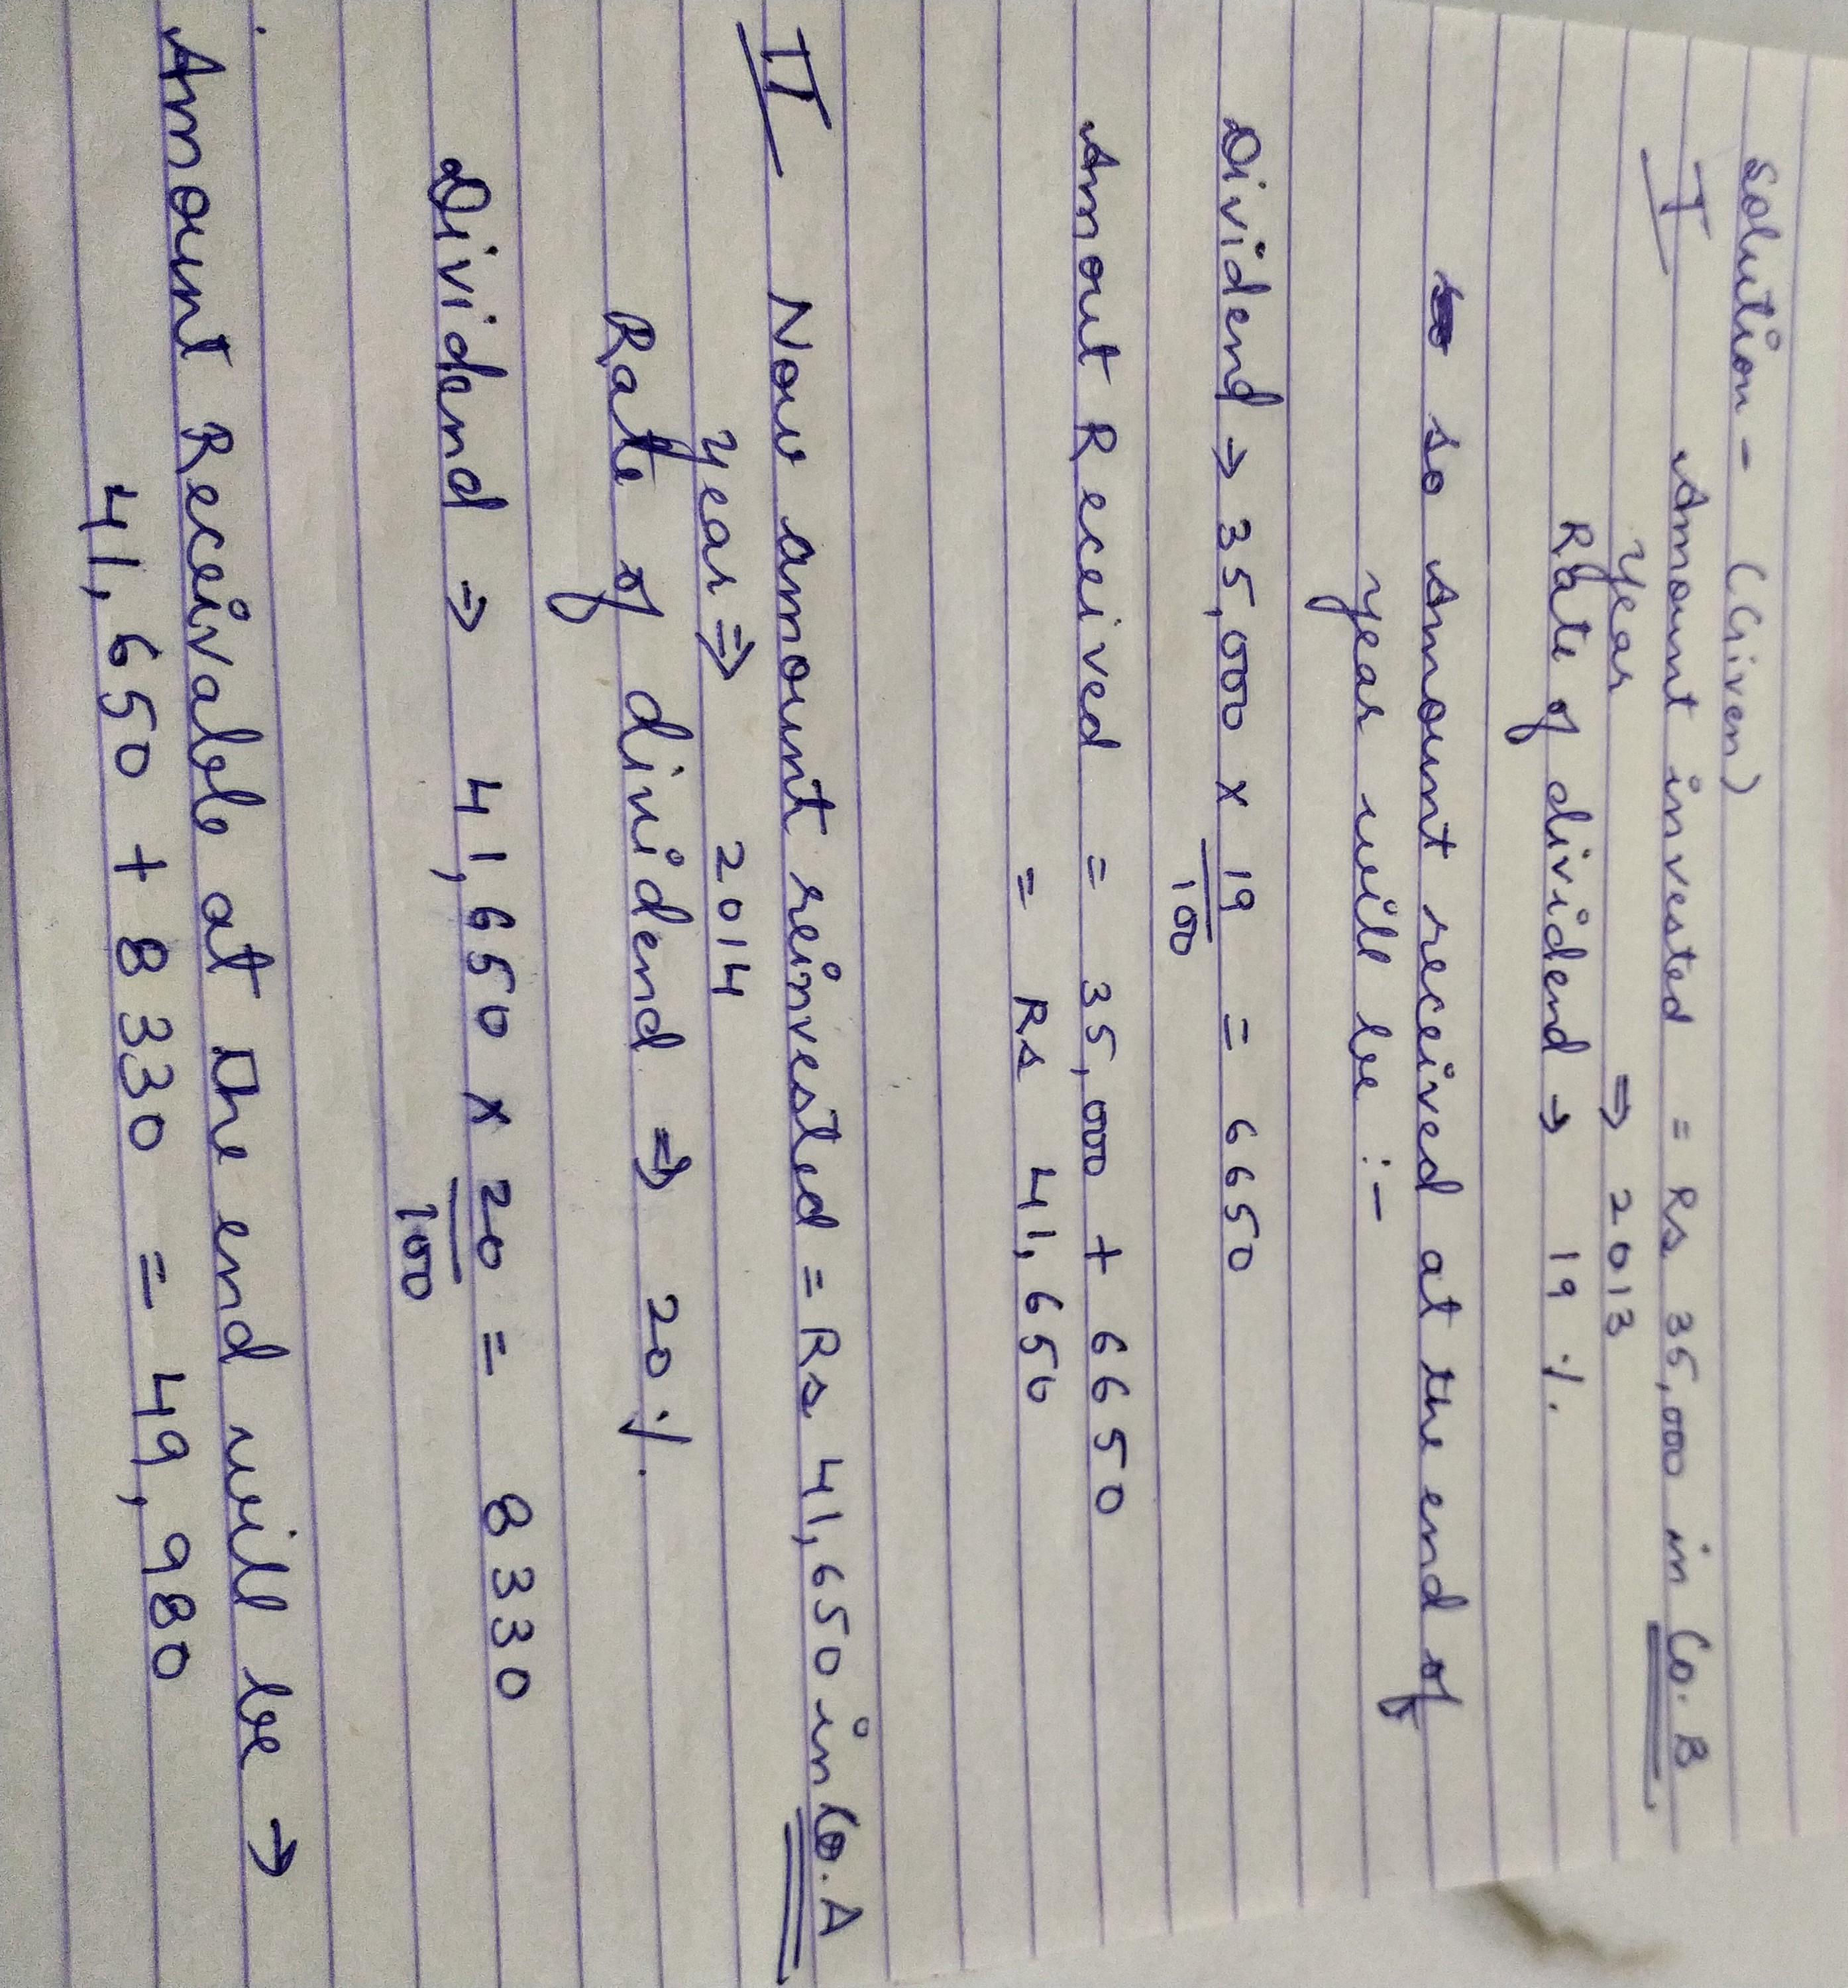 Solution - (Given)
I Amount invested = Rs 35,000 in Co. B
year ⇒ 2013
Rate of dividend → 19 %.
so Amount received at the end of
year will be :-
Dividend → 35,000 × 19/100 = 6650
Amout Received = 35,000 + 6650
= Rs 41,650
II Now amount reinvested = Rs 41,650 in Co. A
year ⇒ 2014
Rate of dividend ⇒ 20 %.
Dividend ⇒ 41,650 × 20/100 = 8330
Amount Receivable at the end will be →
41,650 + 8330 = 49,980